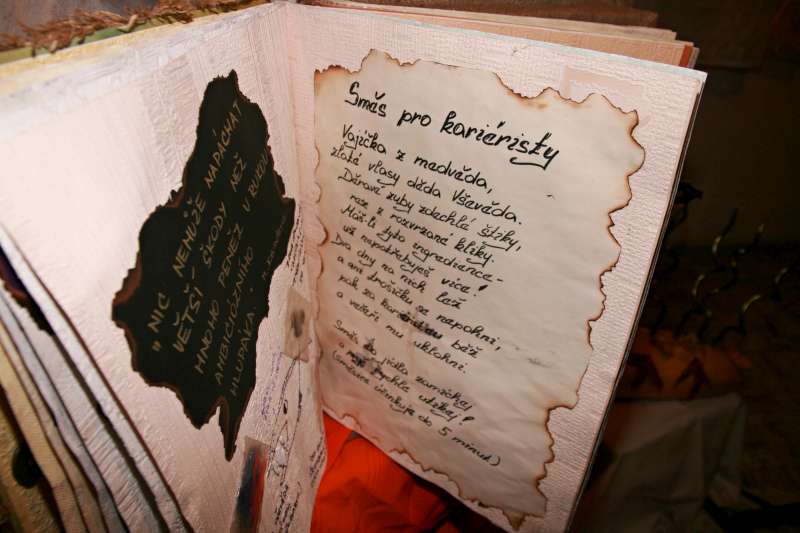 „NIC NEMŮŽE NAPÁCHAT
VĚTŠÍ ŠKODY NEŽ
MNOHO PENĚZ V RUKOU
AMBICIÓZNÍHO
HLUPÁKA“
Směs pro kariéristy
Vajíčka z medvěda,
zlaté vlasy děda Vševěda.
Děravé zuby zdechlé štiky,
rez z rozvrzané kliky.
Máš-li tyto ingredience -
už nepotřebuješ více!
Dva dny na nich lež
a ani trošičku se nepohni,
pak za kariérou běž
a večeři mu uklohni.
Směs do jídla zamíchej
a rychle utíkej!
(směs účinkuje do 5 minut)